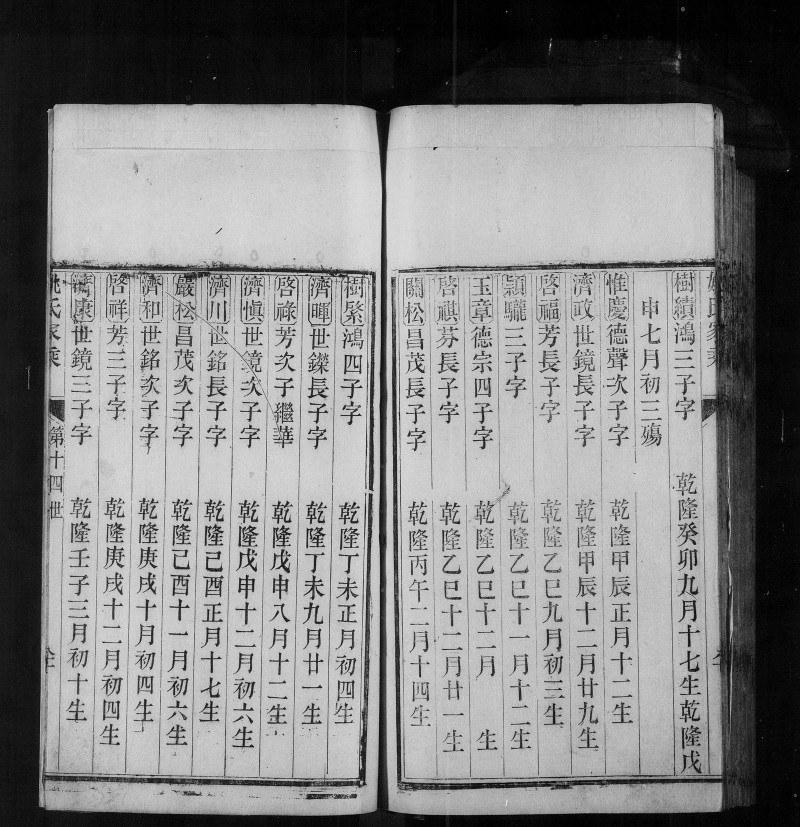 姚氏家乘
樹績鴻三子字 乾隆癸卯九月十七生乾隆戊
申七月初三殤
惟慶德聲次子字 乾隆甲辰正月十二生
濟政世鏡長子字 乾隆甲辰十二月廿九生
啓福芳長子字 乾隆乙巳九月初三生
頴驪三子字 乾隆乙巳十一月十二生
玉章德宗四子字 乾隆乙巳十二月 生
啓祺芬長子字 乾隆乙巳十二月廿一生
關松昌茂長子字 乾隆丙午二月十四生
樹縏鴻四子字 乾隆丁未正月初四生
濟暉世鑅長子字 乾隆丁未九月廿一生
啓祿芳次子繼華 乾隆戊申八月十二生
濟愼世鏡次子字 乾隆戊申十二月初六生
濟川世銘長子字 乾隆己酉正月十七生
嚴松昌茂次子字 乾隆己酉十一月初六生
濟和世銘次子字 乾隆庚戌十月初四生
啓祥芳三子字 乾隆庚戌十二月初四生
濟康世鏡三子字 乾隆壬子三月初十生
姚氏家乘 第十四世